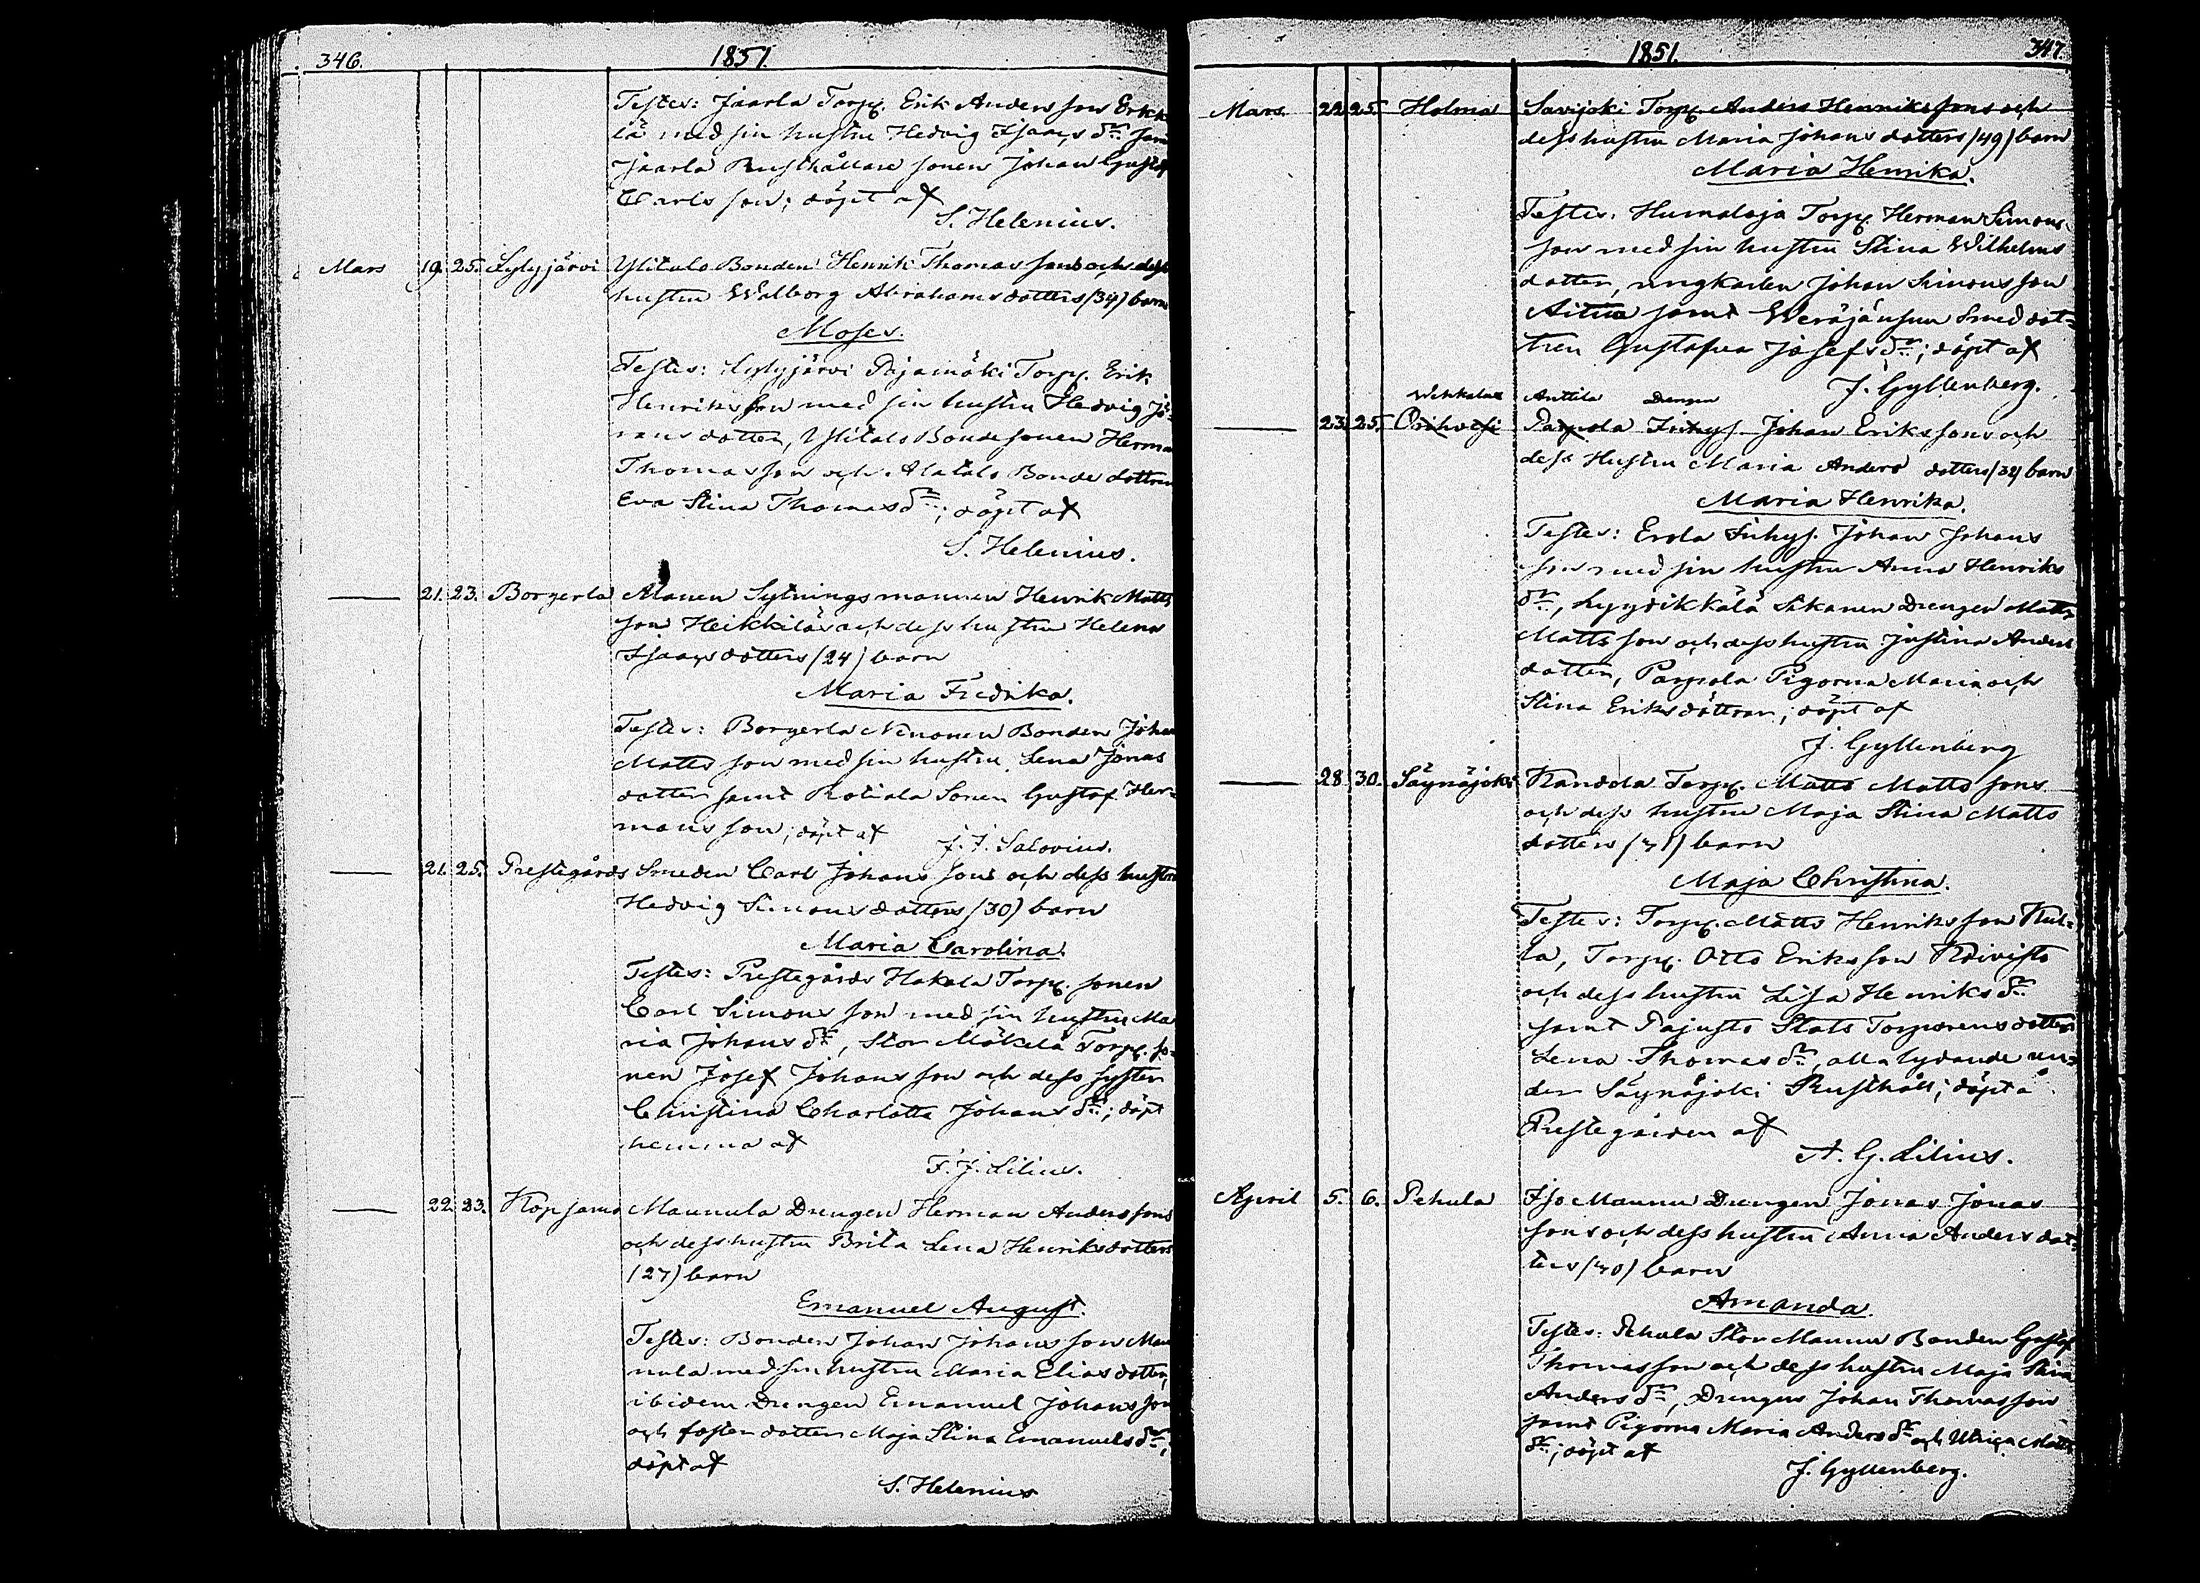 346.
1851.
Testes: Jaarla Torp. Erik Andersson Erkk
lä med sin hustru Hedvig Isaacs dr. sam
Jaarla Rusthållare sonen Johan Gustaf
Carls son; döpt af
S. Helenius.
Mars 19. 25. Lylyjärvi Ylitalo Bonden Henrik Thomas sons och dess
hustru Walborg Abrahams dotters (34) barn
Moses.
Testes: Lylyjärvi Pajamäki Torp. Erik
Henriksson med sin hustru Hedvig Jö-
rans dotter, Ylitalo Bondesonen Herma
Thomasson och Alatalo Bonde dottren
Eva Stina Thomasdr.; döpt af
S. Helenius.
— 21. 23. Borgerla Manen Sytningsmannen Henrik Matts
son Heikkiläs och dess hustru Helena
Isaacs dotters (24) barn
Maria Fredrika.
Testes: Borgerla Nenonen Bonden Johan
Matts son med sin hustru Lena Jonas
dotter samt Rotiala Sonen Gustaf Her-
mans son; döpt af
J. F. Salovius.
— 21. 25. Prestegårds Smeden Carl Johans sons och dess hustru
Hedvig Simons dotters (30) barn
Maria Carolina.
Testes: Prestegårds Hakala Torp. sonen
Carl Simons son med sin hustru Ma
ria Johans dr., Stor Mäkelä Torp. so-
nen Josef Johans son och dess syster
Christina Charlotta Johans dr.; döpt
hemma af
F. J. Lilius.
— 22. 23. Kopsamo Maunula Drengen Herman Anders sons
och dess hustru Brita Lena Henriksdotters
(27) barn
Emanuel August.
Testes: Bonden Johan Johans son Mau
nula med sin hustru Maria Elias dotter,
ibidem Drengen Emanuel Johans son
och foster dottren Maja Stina Emanuels dr.;
döpt af
S. Helenius
1851.
347.
Mars. 22. 25. Holma Savijoki Torp. Anders Henriks sons och
dess hustru Maria Johans dotters (49) barn
Maria Henrika.
Testes: Humaloja Torp. Herman Simons
son med sin hustru Stina Wilhelms
dotter, ungkarlen Johan Simons son
Aitua samt Weräjänsuu Smed dot-
tren Gustafva Josefs dr.; döpt af
J. Gyllenberg.
Wehkalax Anttila Drengen
— 23. 25. Orihvesi Papola Inhys. Johan Eriks sons och
dess Hustru Maria Anders dotters (32) barn
Maria Henrika.
Testes: Erola Inhys. Johan Johans
son med sin hustru Anna Henriks
dr., Lyydikkälä Sikanen Drengen Matts
Matts son och dess hustru Justina Anders
dotter, Papola Pigorna Maria och
Stina Eriksdöttrar; döpt af
J. Gyllenberg
— 28. 30. Säynäjoki Kandola Torp. Matts Matts sons
och dess hustru Maja Stina Matts
dotters (31) barn
Maja Christina.
Testes: Torp. Matts Henriks son Kul-
la, Torp. Otto Eriks son Koivisto
och dess hustru Lisa Henriks dr.
samt Pajusto Stats Torparens dotter
Lena Thomas dr., alla lydande un-
der Säynäjoki Rusthåll; döpt å
Prestegården af
A. G. Lilius.
April 5. 6. Pehula Iso Maunu Drengen Jonas Jonas
sons och dess hustru Anna Anders dot-
ters (30) barn
Amanda.
Testes: Pehula Stor Maunu Bonden Gustaf
Thomas son och dess hustru Maja Stina
Anders dr., Drengen Johan Thomas son
samt Pigorna Maria Anders dr. och Ulrica Matts
dr.; döpt af
J. Gyllenberg.